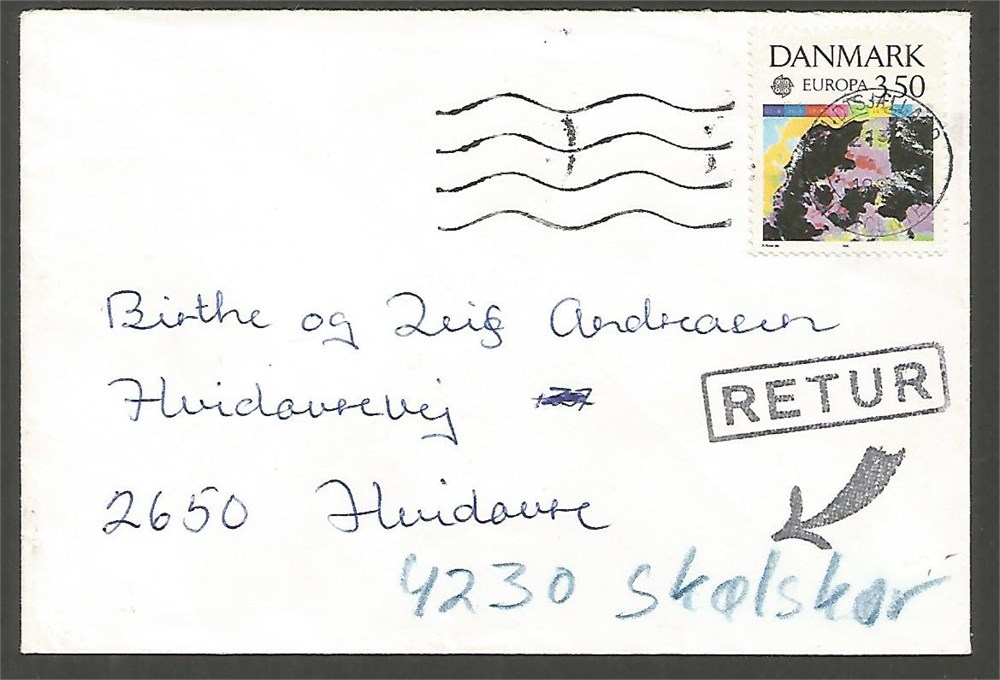 DANMARK
EUROPA 3.50
Birthe og Leif Andreasen
Hvidovrevej
RETUR
2650 Hvidovre
4230 Skælskør